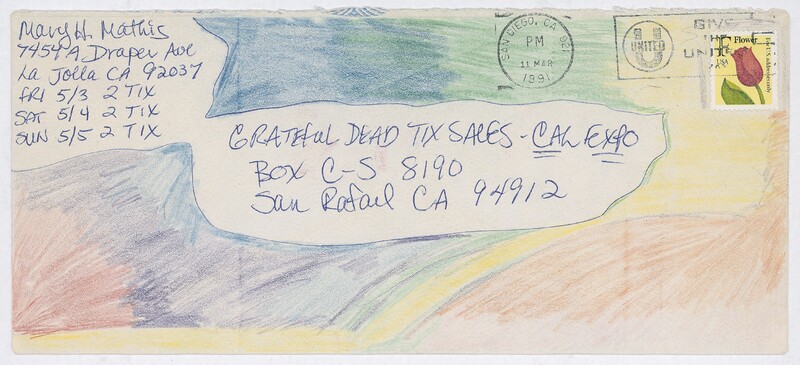 Mary H. Mathis
7454 A Draper Ave
La Jolla CA 92037
FRI 5/3 2 TIX
SAT 5/4 2 TIX
SUN 5/5 2 TIX
GRATEFUL DEAD TIX SALES - CAL EXPO
BOX C-S 8190
San Rafael CA 94912
SAN DIEGO, CA 921
PM
11 MAR
1991
UNITED
GIVE
THE
UNITED
F Flower
USA
For U.S. addresses only